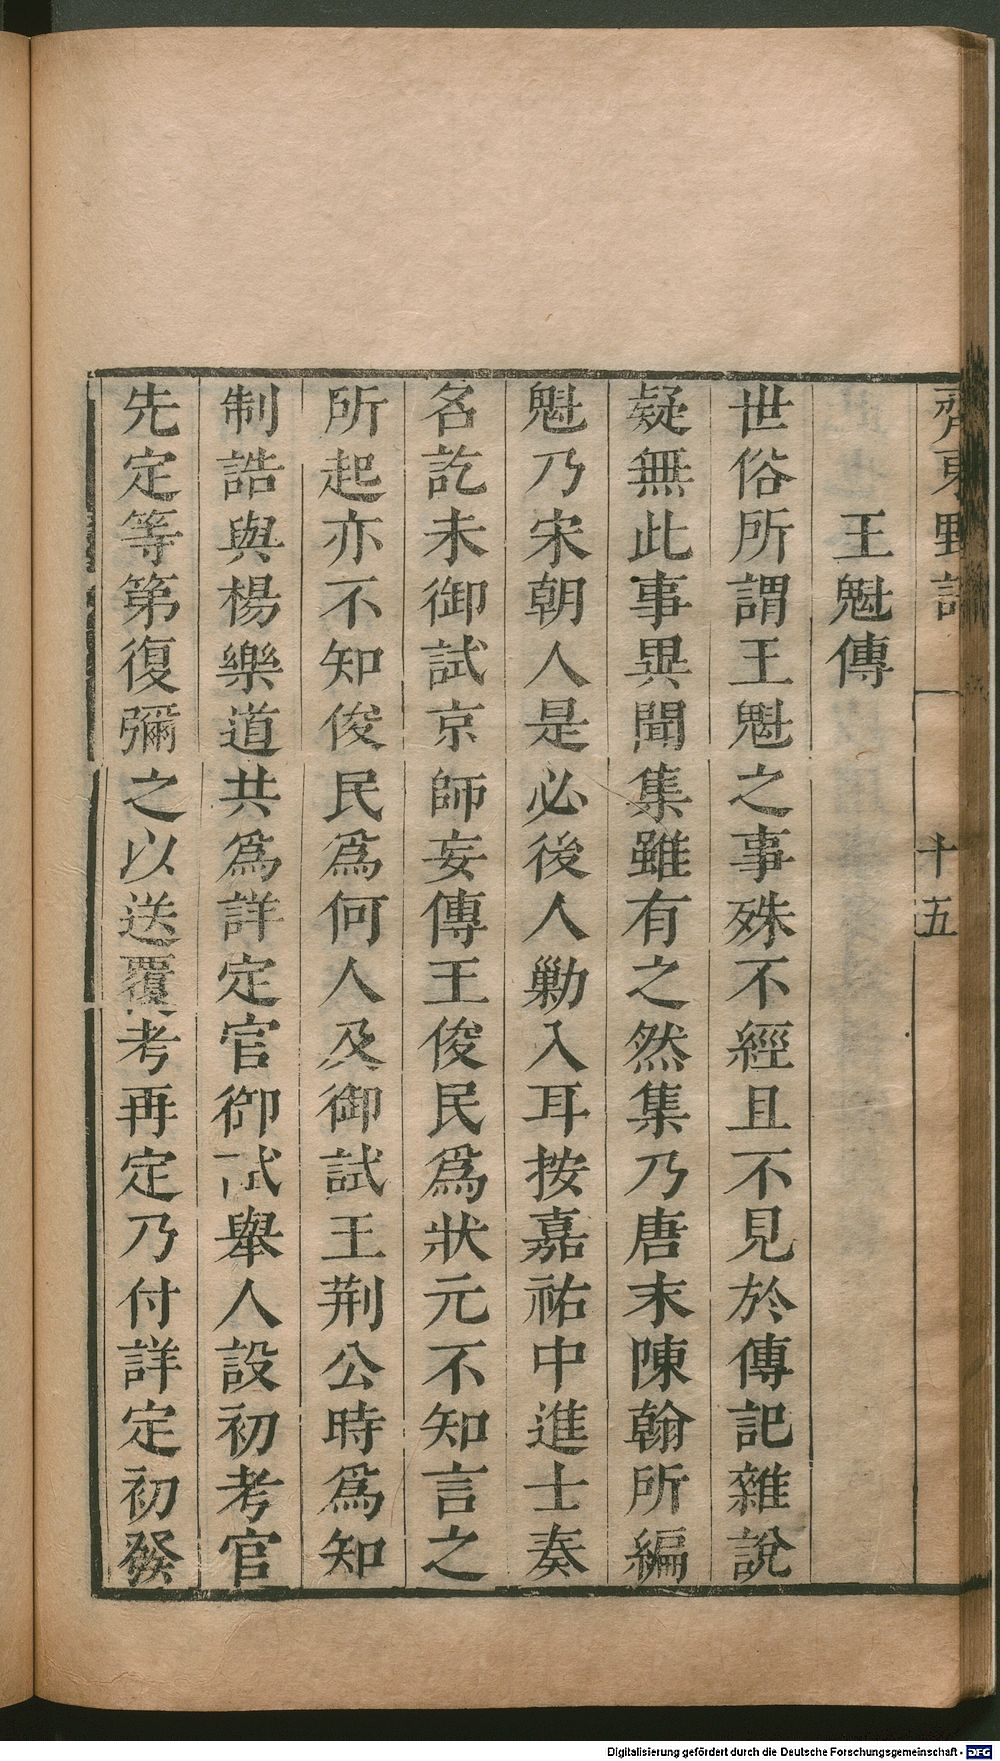 齊東野語
十五
王魁傳
世俗所謂王魁之事殊不經且不見於傳記雜說
疑無此事異聞集雖有之然集乃唐末陳翰所編
魁乃宋朝人是必後人勦入耳按嘉祐中進士奏
名訖未御試京師妄傳王俊民爲狀元不知言之
所起亦不知俊民爲何人及御試王荆公時爲知
制誥與楊樂道共爲詳定官御試舉人設初考官
先定等第復彌之以送覆考再定乃付詳定初發
Digitalisierung gefördert durch die Deutsche Forschungsgemeinschaft - DFG